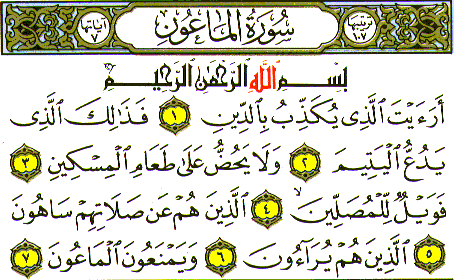 ترتيبها ١٠٧ سُورَةُ المَاعُون آياتها ٧
بِسْمِ اللَّهِ الرَّحْمَٰنِ الرَّحِيمِ
أَرَءَيْتَ الَّذِى يُكَذِّبُ بِالدِّينِ ١ فَذَٰلِكَ الَّذِى
يَدُعُّ الْيَتِيمَ ٢ وَلَا يَحُضُّ عَلَىٰ طَعَامِ الْمِسْكِينِ ٣
فَوَيْلٌ لِّلْمُصَلِّينَ ٤ الَّذِينَ هُمْ عَن صَلَاتِهِمْ سَاهُونَ
٥ الَّذِينَ هُمْ يُرَآءُونَ ٦ وَيَمْنَعُونَ الْمَاعُونَ ٧